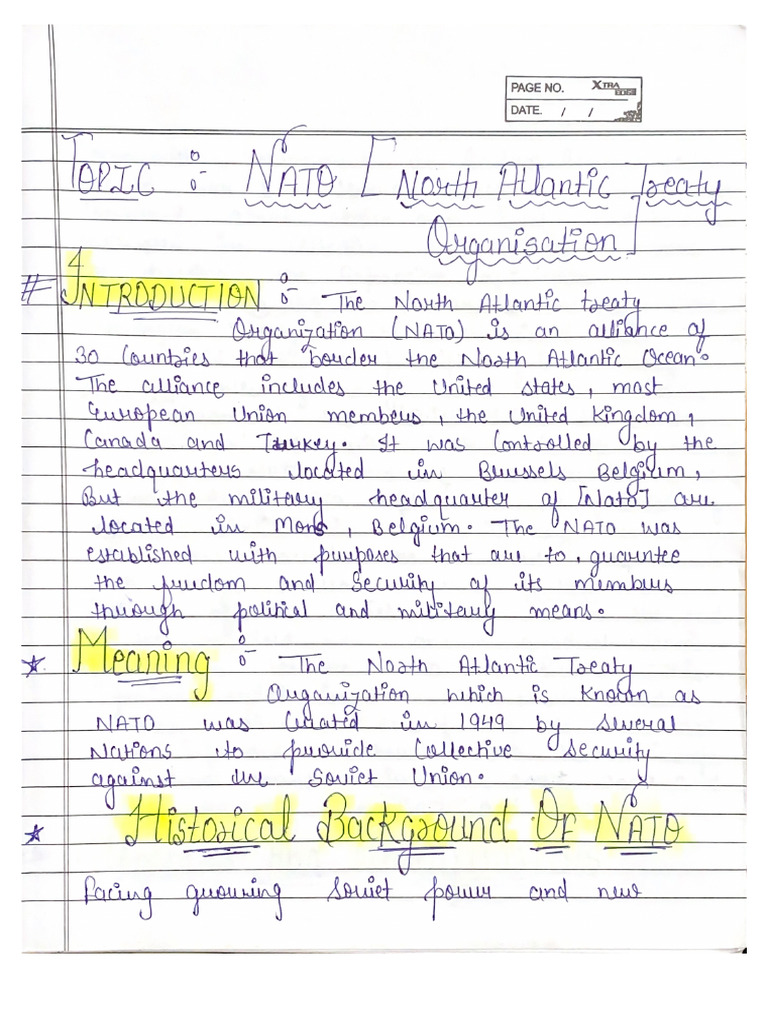 PAGE NO. XTRA EDGE
DATE. / /
TOPIC :- NATO [North Atlantic Treaty
Organisation]
4
# INTRODUCTION :- The North Atlantic treaty
Organization (NATO) is an alliance of
30 Countries that border the North Atlantic Ocean.
The alliance includes the United states, most
European Union members, the United Kingdom,
Canada and Turkey. It was Controlled by the
headquarters located in Brussels Belgium,
But the military headquarter of [Nato] are
located in Mons, Belgium. The NATO was
established with purposes that are to, guarntee
the freedom and Security of its members
through political and military means.
Meaning :- The North Atlantic Treaty
Organization which is Known as
NATO was Created in 1949 by several
Nations to provide Collective Security
against the Soviet Union.
Historical Background Of NATO
Facing growing Soviet power and new